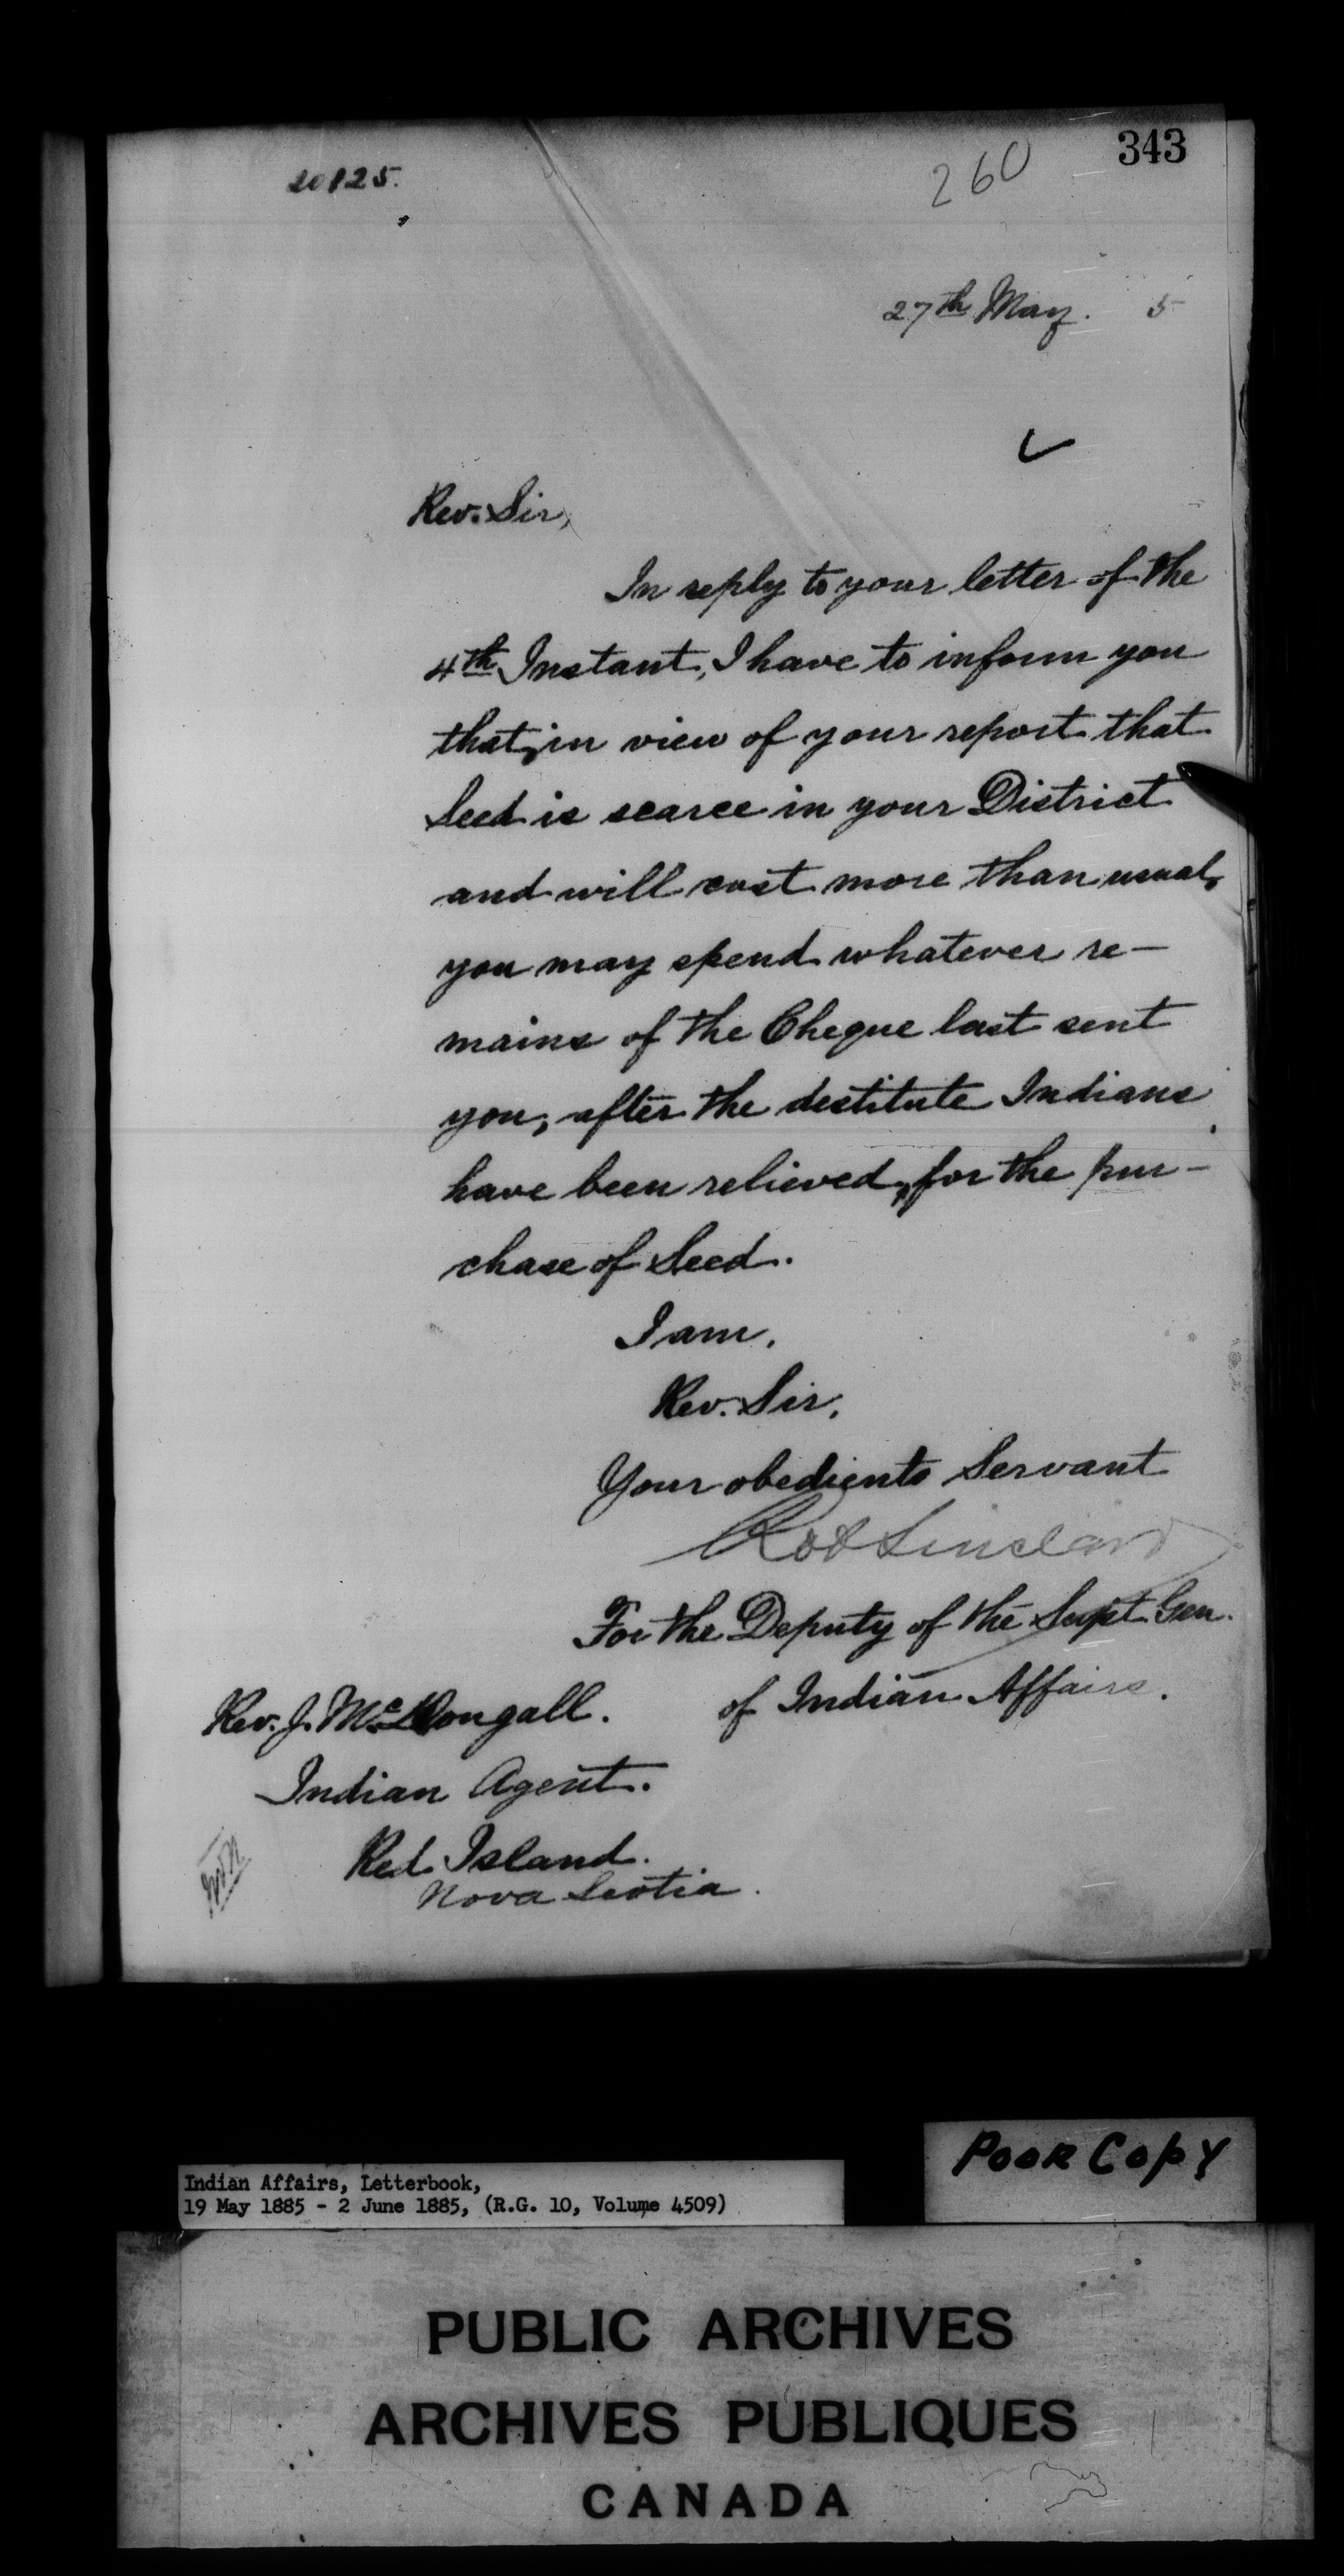 343
260
20125.
27th May. 5
Rev. Sir,
In reply to your letter of the
4th Instant, I have to inform you
that, in view of your report that
Seed is scarce in your District
and will cost more than usual,
you may spend whatever re-
mains of the Cheque last sent
you, after the destitute Indians
have been relieved, for the pur-
chase of Seed.
I am,
Rev. Sir,
Your obedient Servant
Rob Sinclair
For the Deputy of the Supt. Gen.
of Indian Affairs.
Rev. J. McDougall.
Indian Agent.
Red Island.
Nova Scotia.
Poor Copy
Indian Affairs, Letterbook,
19 May 1885 - 2 June 1885, (R.G. 10, Volume 4509)
PUBLIC ARCHIVES
ARCHIVES PUBLIQUES
CANADA